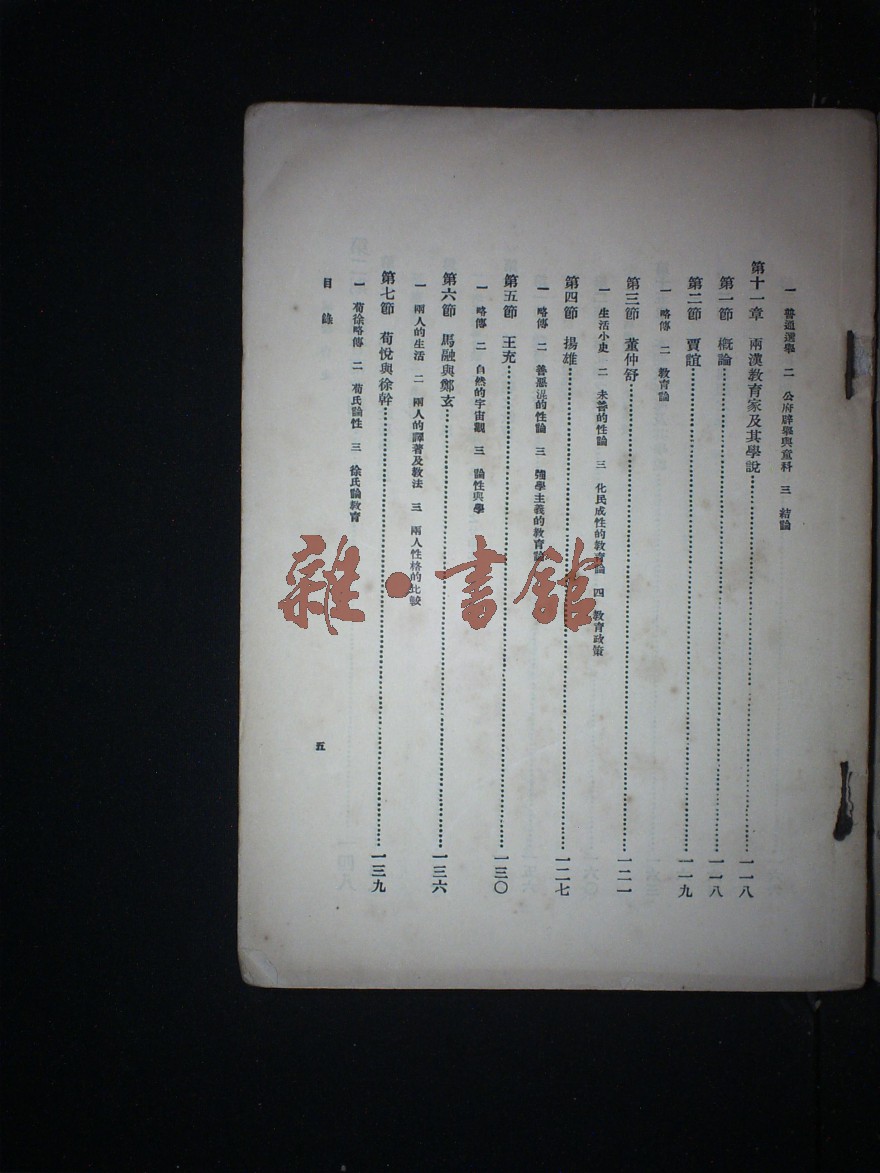 一 普通選舉 二 公府辟舉與童科 三 結論
第十一章 兩漢教育家及其學說……一一八
第一節 概論……一一八
第二節 賈誼……一一九
一 略傳 二 教育論
第三節 董仲舒……一二一
一 生活小史 二 未善的性論 三 化民成性的教育論 四 教育政策
第四節 揚雄……一二七
一 略傳 二 善惡混的性論 三 強學主義的教育論
第五節 王充……一三〇
一 略傳 二 自然的宇宙觀 三 論性與學
第六節 馬融與鄭玄……一三六
一 兩人的生活 二 兩人的譯著及教法 三 兩人性格的比較
第七節 荀悅與徐幹……一三九
一 荀徐略傳 二 荀氏論性 三 徐氏論教育
目錄
五
雜·書館